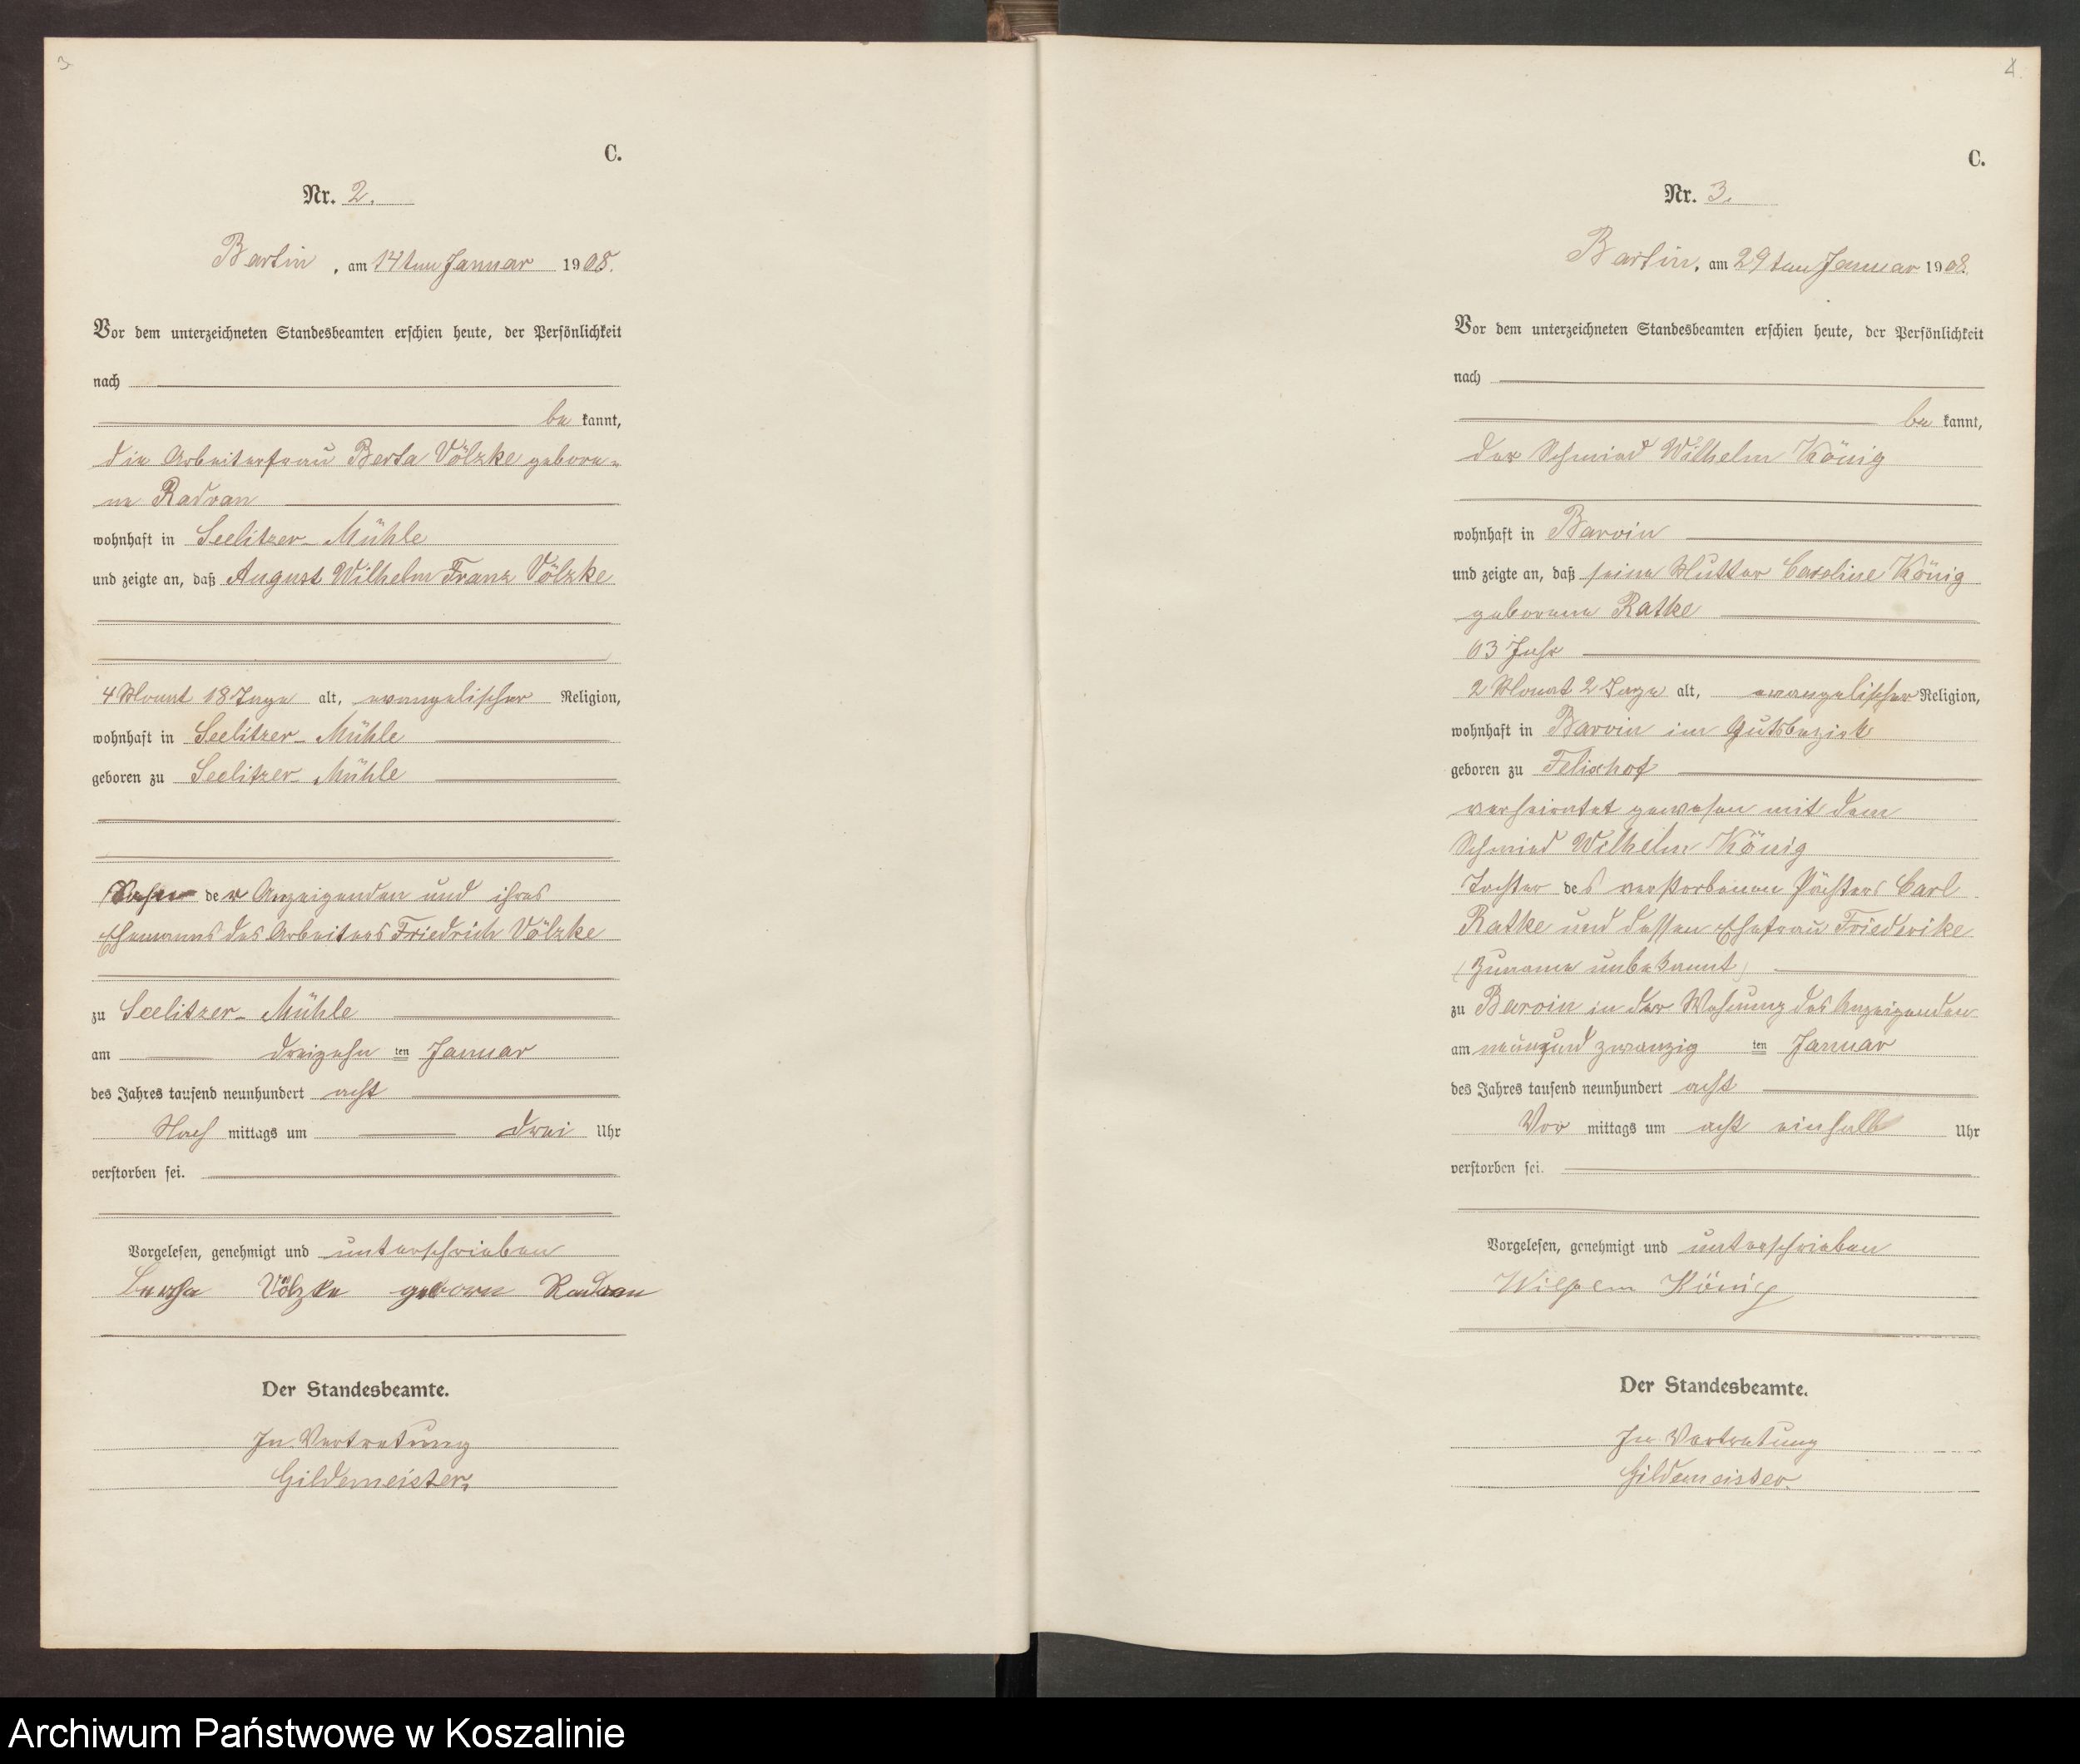 3
C.
Nr. 2.
Bartin, am 14ten Januar 1908.
Vor dem unterzeichneten Standesbeamten erschien heute, der Persönlichkeit
nach
be kannt,
die Arbeiterfrau Berta Völzke gebore-
ne Radvan
wohnhaft in Seelitzer-Mühle
und zeigte an, daß August Wilhelm Franz Völzke
4 Monat 18 Tage alt, evangelischer Religion,
wohnhaft in Seelitzer-Mühle
geboren zu Seelitzer-Mühle
der Anzeigenden und ihres
Ehemanns des Arbeiters Friedrich Völzke
zu Seelitzer-Mühle
am dreizehn ten Januar
des Jahres tausend neunhundert acht
Nach mittags um drei Uhr
verstorben sei.
Vorgelesen, genehmigt und unterschrieben
Bertha Völzke geborn Radvan
Der Standesbeamte.
In Vertretung
Gildemeister.
4.
C.
Nr. 3.
Bartin, am 29ten Januar 1908.
Vor dem unterzeichneten Standesbeamten erschien heute, der Persönlichkeit
nach
be kannt,
der Schmied Wilhelm König
wohnhaft in Barvin
und zeigte an, daß seine Mutter Caroline König
geborene Ratke
63 Jahr
2 Monat 2 Tage alt, evangelischer Religion,
wohnhaft in Barvin im Gutsbezirk
geboren zu Felixhof
verheiratet gewesen mit dem
Schmied Wilhelm König
Tochter des verstorbenen Pächters Carl
Ratke und dessen Ehefrau Friederike
(Zuname unbekannt)
zu Barvin in der Wohnung des Anzeigenden
am neunund zwanzig ten Januar
des Jahres tausend neunhundert acht
Vor mittags um acht einhalb Uhr
verstorben sei.
Vorgelesen, genehmigt und unterschrieben
Wilhelm König
Der Standesbeamte.
In Vertretung
Gildemeister.
Archiwum Państwowe w Koszalinie